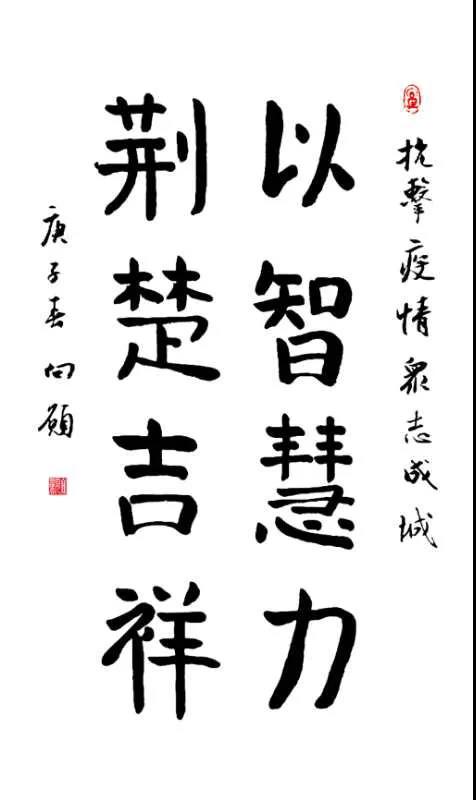 抗擊疫情衆志成城
以智慧力
荆楚吉祥
庚子春向顧